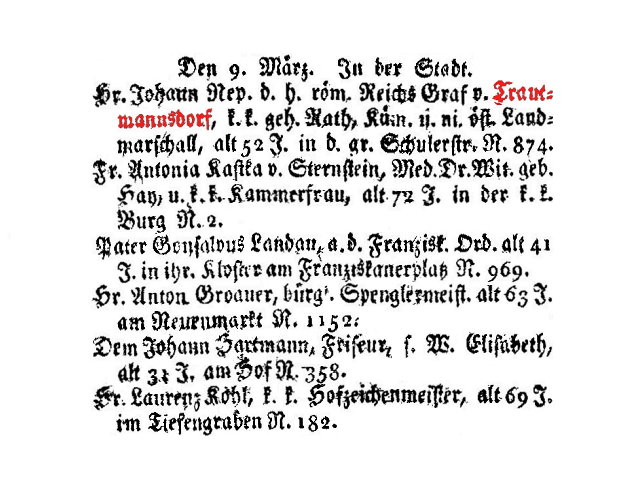 Den 9. März. In der Stadt.
Hr. Johann Nep. d. h. röm. Reichs Graf v. Traut-
mannsdorf, k. k. geh. Rath, Käm. u. ni. öst. Land-
marschall, alt 52 J. in d. gr. Schulerstr. N. 874.
Fr. Antonia Kaska v. Sternstein, Med. Dr. Wit. geb.
Hay, u. k. k. Kammerfrau, alt 72 J. in der k. k.
Burg N. 2.
Pater Gonsalvus Landau, a. d. Franzisk. Ord. alt 41
J. in ihr. Kloster am Franziskanerplatz N. 969.
Hr. Anton Groauer, bürgl. Spenglermeist. alt 63 J.
am Neuenmarkt N. 1152.
Dem Johann Hartmann, Friseur, s. W. Elisabeth,
alt J. am Hof N. 358.
Hr. Laurenz Köhl, k. k. Hofzeichenmeister, alt 69 J.
im Tiefengraben N. 182.